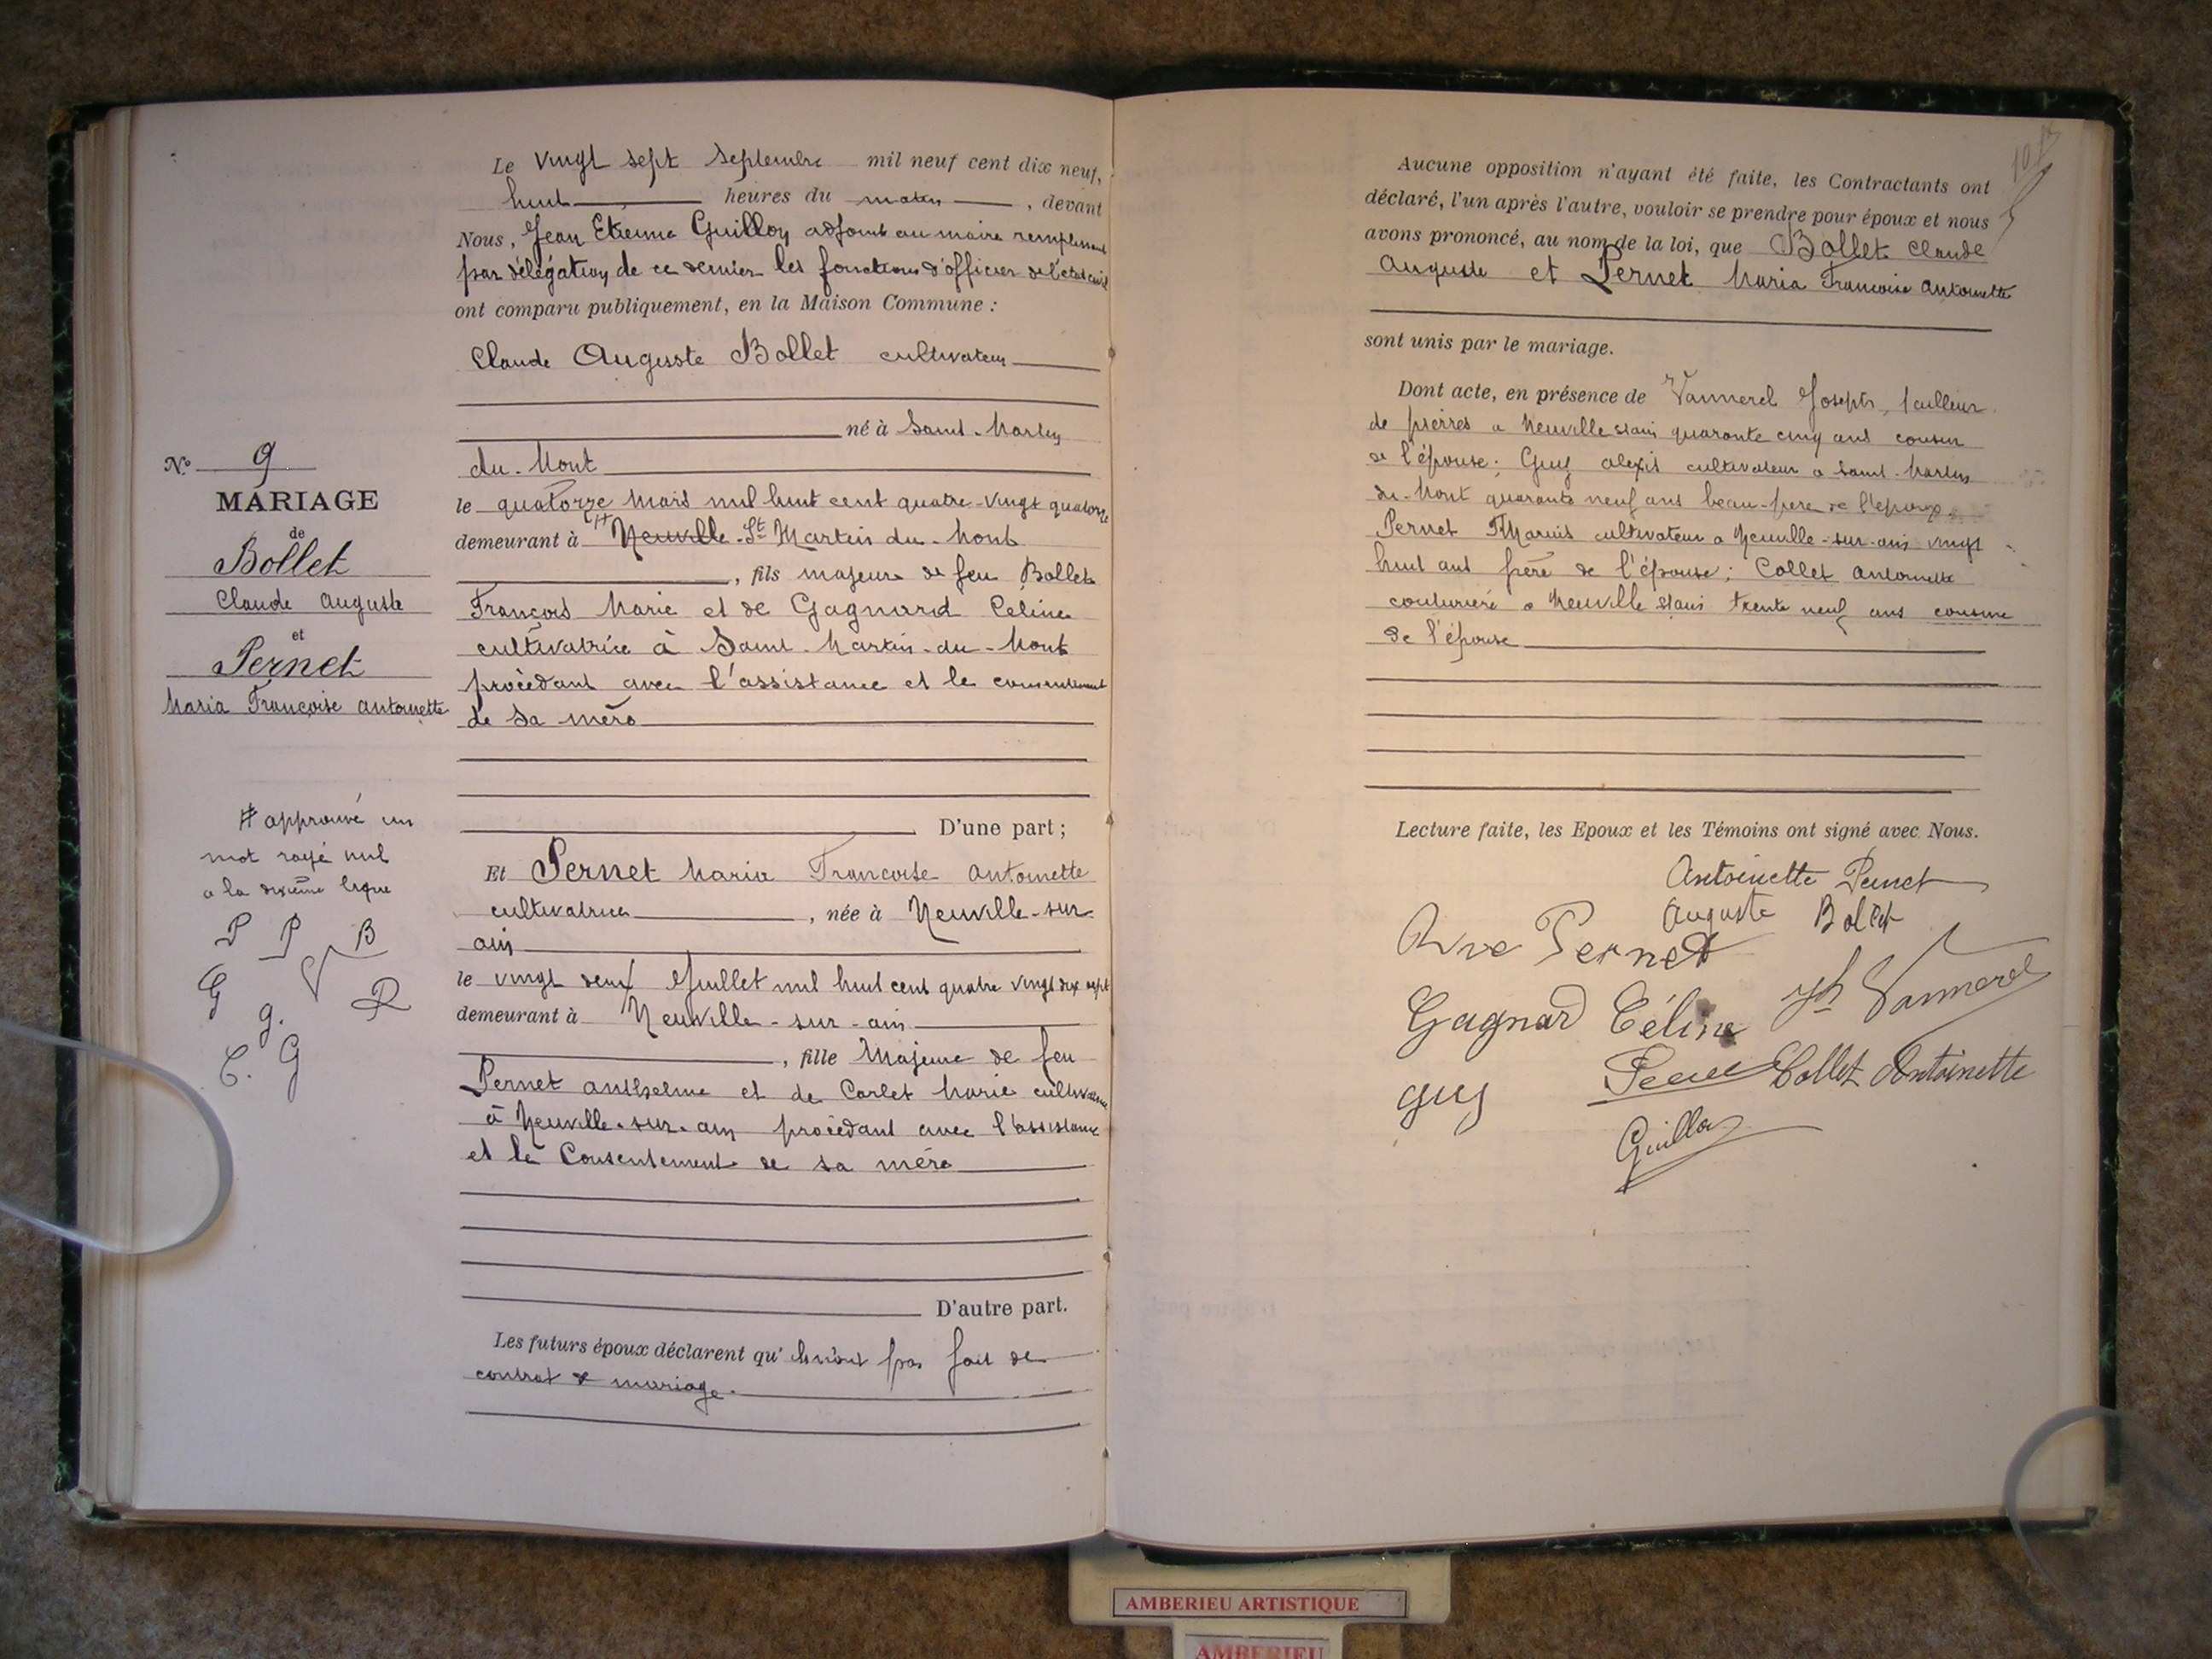 Le vingt sept Septembre mil neuf cent dix neuf,
huit heures du matin, devant
Nous, Jean Etienne Guillon adjoint au maire remplissant
par délégation de ce dernier les fonctions d'officier de l'état civil
ont comparu publiquement, en la Maison Commune :
Claude Auguste Bollet cultivateur
né à Saint-Martin
du-Mont
le quatorze Mars mil huit cent quatre-vingt quatorze
demeurant à # Neuville St Martin du-Mont
, fils majeur de feu Bollet
François Marie et de Gagnard Céline
cultivatrice à Saint-Martin-du-Mont
procèdant avec l'assistance et le consentement
de sa mère
D'une part ;
Et Pernet Maria Francoise Antoinette
cultivatrice, née à Neuville-sur-
ain
le vingt deux Juillet mil huit cent quatre vingt dix sept
demeurant à Neuville-sur-ain
, fille Majeure de feu
Pernet anthelme et de Corlet Marie cultivatrice
à Neuville-sur-ain procèdant avec l'assistance
et le Consentement de sa mère
D'autre part.
Les futurs époux déclarent qu'ils n'ont pas fait de
contrat de mariage.
N° 9
MARIAGE
de
Bollet
Claude Auguste
et
Pernet
Maria Françoise Antoinette
# approuvé un
mot rayé nul
a la dixième ligne
P P B
G V R
g.
C. G
Aucune opposition n'ayant été faite, les Contractants ont
déclaré, l'un après l'autre, vouloir se prendre pour époux et nous
avons prononcé, au nom de la loi, que Bollet Claude
Auguste et Pernet Maria Francoise Antoinette
sont unis par le mariage.
Dont acte, en présence de Vannerel Joseph, tailleur
de pierres a Neuville s/ain quarante cinq ans cousin
de l'épouse ; Guy alexis cultivateur a Saint-Martin
du-Mont quarante neuf ans beau-père de l'époux,
Pernet Marius cultivateur a Neuville-sur-ain vingt
huit ans frère de l'épouse ; Collet Antoinette
couturière a Neuville s/ain trente neuf ans cousine
de l'épouse
Lecture faite, les Epoux et les Témoins ont signé avec Nous.
Antoinette Pernet
Auguste Bollet
Vve Pernet
Gagnard Céline Jh Vannerel
guy Pernet Collet Antoinette
Guillon
AMBERIEU ARTISTIQUE
AMBERIEU